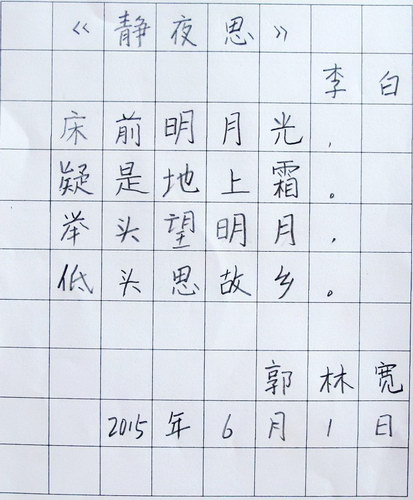 《静夜思》
李白
床前明月光，
疑是地上霜。
举头望明月，
低头思故乡。
郭林宽
2015年6月1日